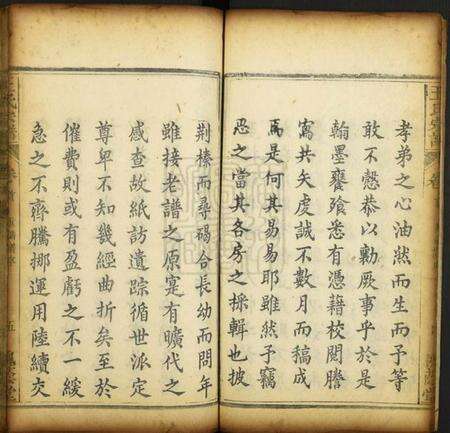 孝弟之心油然而生而予等
敢不慤恭以勷厥事乎於是
翰墨饔飱悉有憑藉校閱謄
寫共矢虔誠不數月而稿成
焉是何其易易耶雖然予竊
思之當其各房之採輯也披
荆榛而尋碣合長幼而問年
雖接老譜之原寔有曠代之
感查故紙訪遺踪循世派定
尊卑不知幾經曲折矣至於
催費則或有盈虧之不一緩
急之不齊騰挪運用陸續交
五